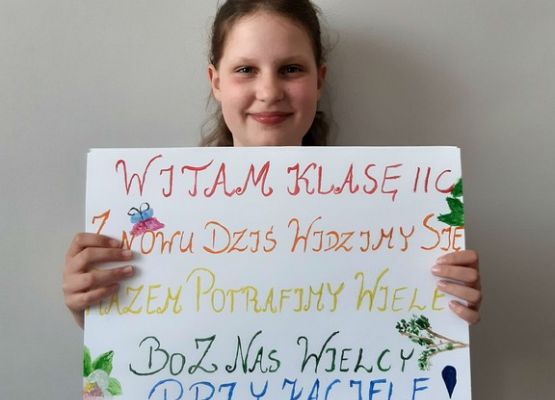 WITAM KLASĘ IIC
ZNOWU DZIŚ WIDZIMY SIĘ
RAZEM POTRAFIMY WIELE
BO Z NAS WIELCY
PRZYJACIELE